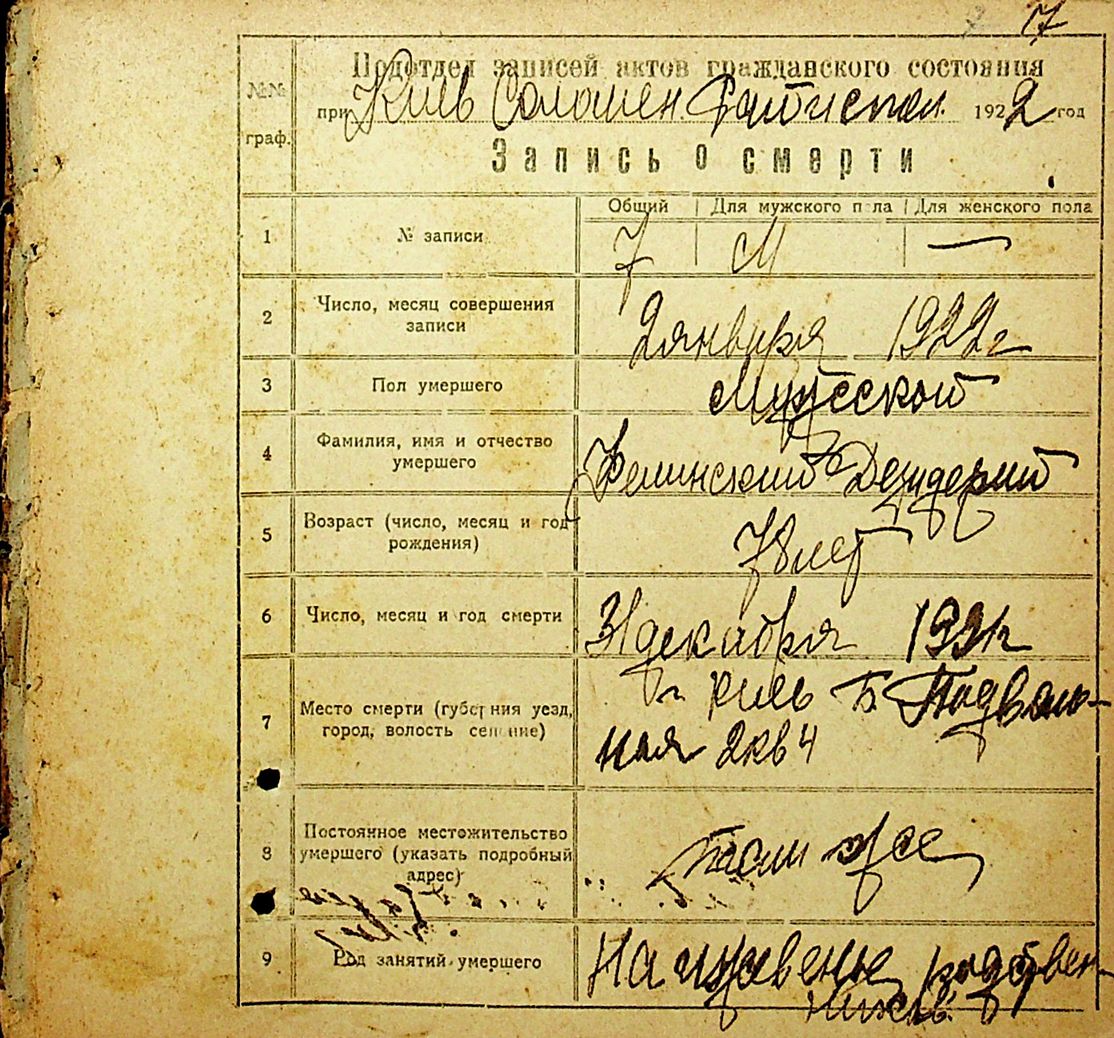 7
Подотдел записей актов гражданского состояния
№№ граф.
при Киев Соломен. Райисполк. 1922 год
Запись о смерти
Общий | Для мужского пола | Для женского пола
1 № записи 7 М —
2 Число, месяц совершения
записи
2 января 1922 г
3 Пол умершего Мужской
4 Фамилия, имя и отчество
умершего
Дезидерий
5 Возраст (число, месяц и год
рождения)
78 лет
6 Число, месяц и год смерти 31 декабря 1921 г
7 Место смерти (губерния уезд,
город, волость селение)
г Киев Б Подваль-
ная 2 кв 4
8 Постоянное местожительство
умершего (указать подробный
адрес)
там же
9 Род занятий умершего На иждивенье родствен-
ников